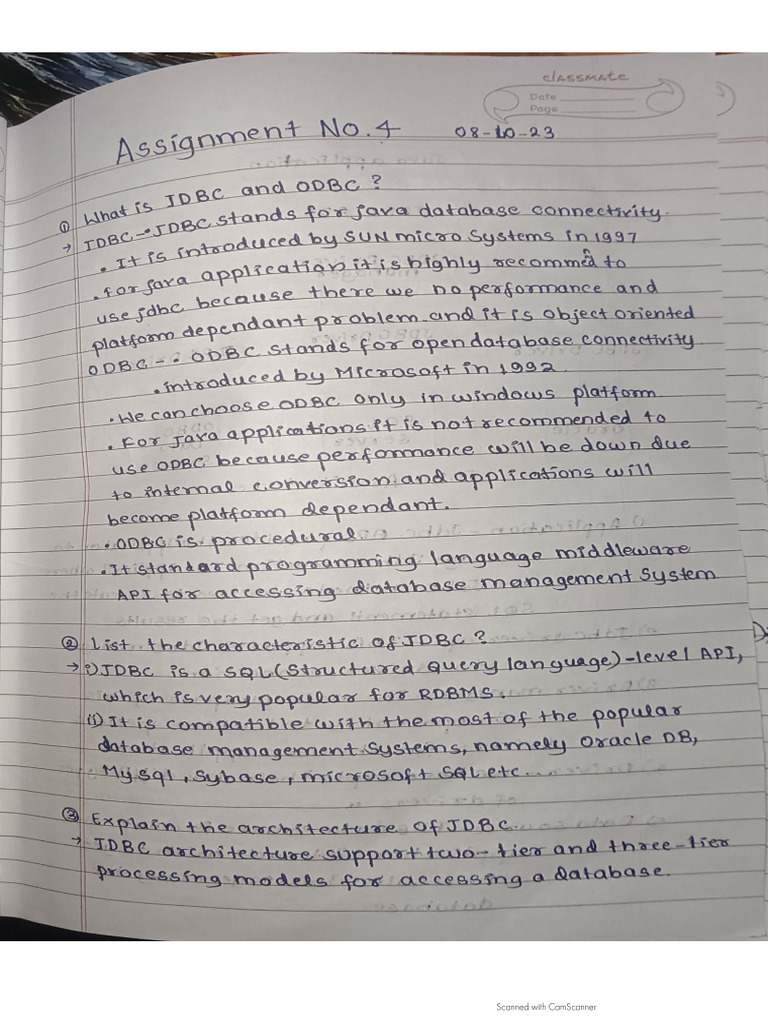 classmate
Date
Page
Assignment No. 4 08-10-23
① What is JDBC and ODBC ?
→ JDBC - • JDBC stands for java database connectivity.
• It is introduced by SUN micro Systems in 1997
• for java application it is highly recommend to
use jdbc because there we no performance and
platform dependant problem and it is object oriented
ODBC - • ODBC stands for open database connectivity
• introduced by Microsoft in 1992.
• We can choose ODBC only in windows platform.
• For java applications it is not recommended to
use ODBC because performance will be down due
to internal conversion and applications will
become platform dependant.
• ODBC is procedural
• It standard programming language middleware
API for accessing database management system
② List the characteristic of JDBC ?
→ i) JDBC is a SQL (Structured Query language)-level API,
which is very popular for RDBMS.
ii) It is compatible with the most of the popular
database management systems, namely Oracle DB,
My sql, Sybase, microsoft SQL etc...
③ Explain the architecture of JDBC.
→ JDBC architecture support two-tier and three-tier
processing models for accessing a database.
Scanned with CamScanner